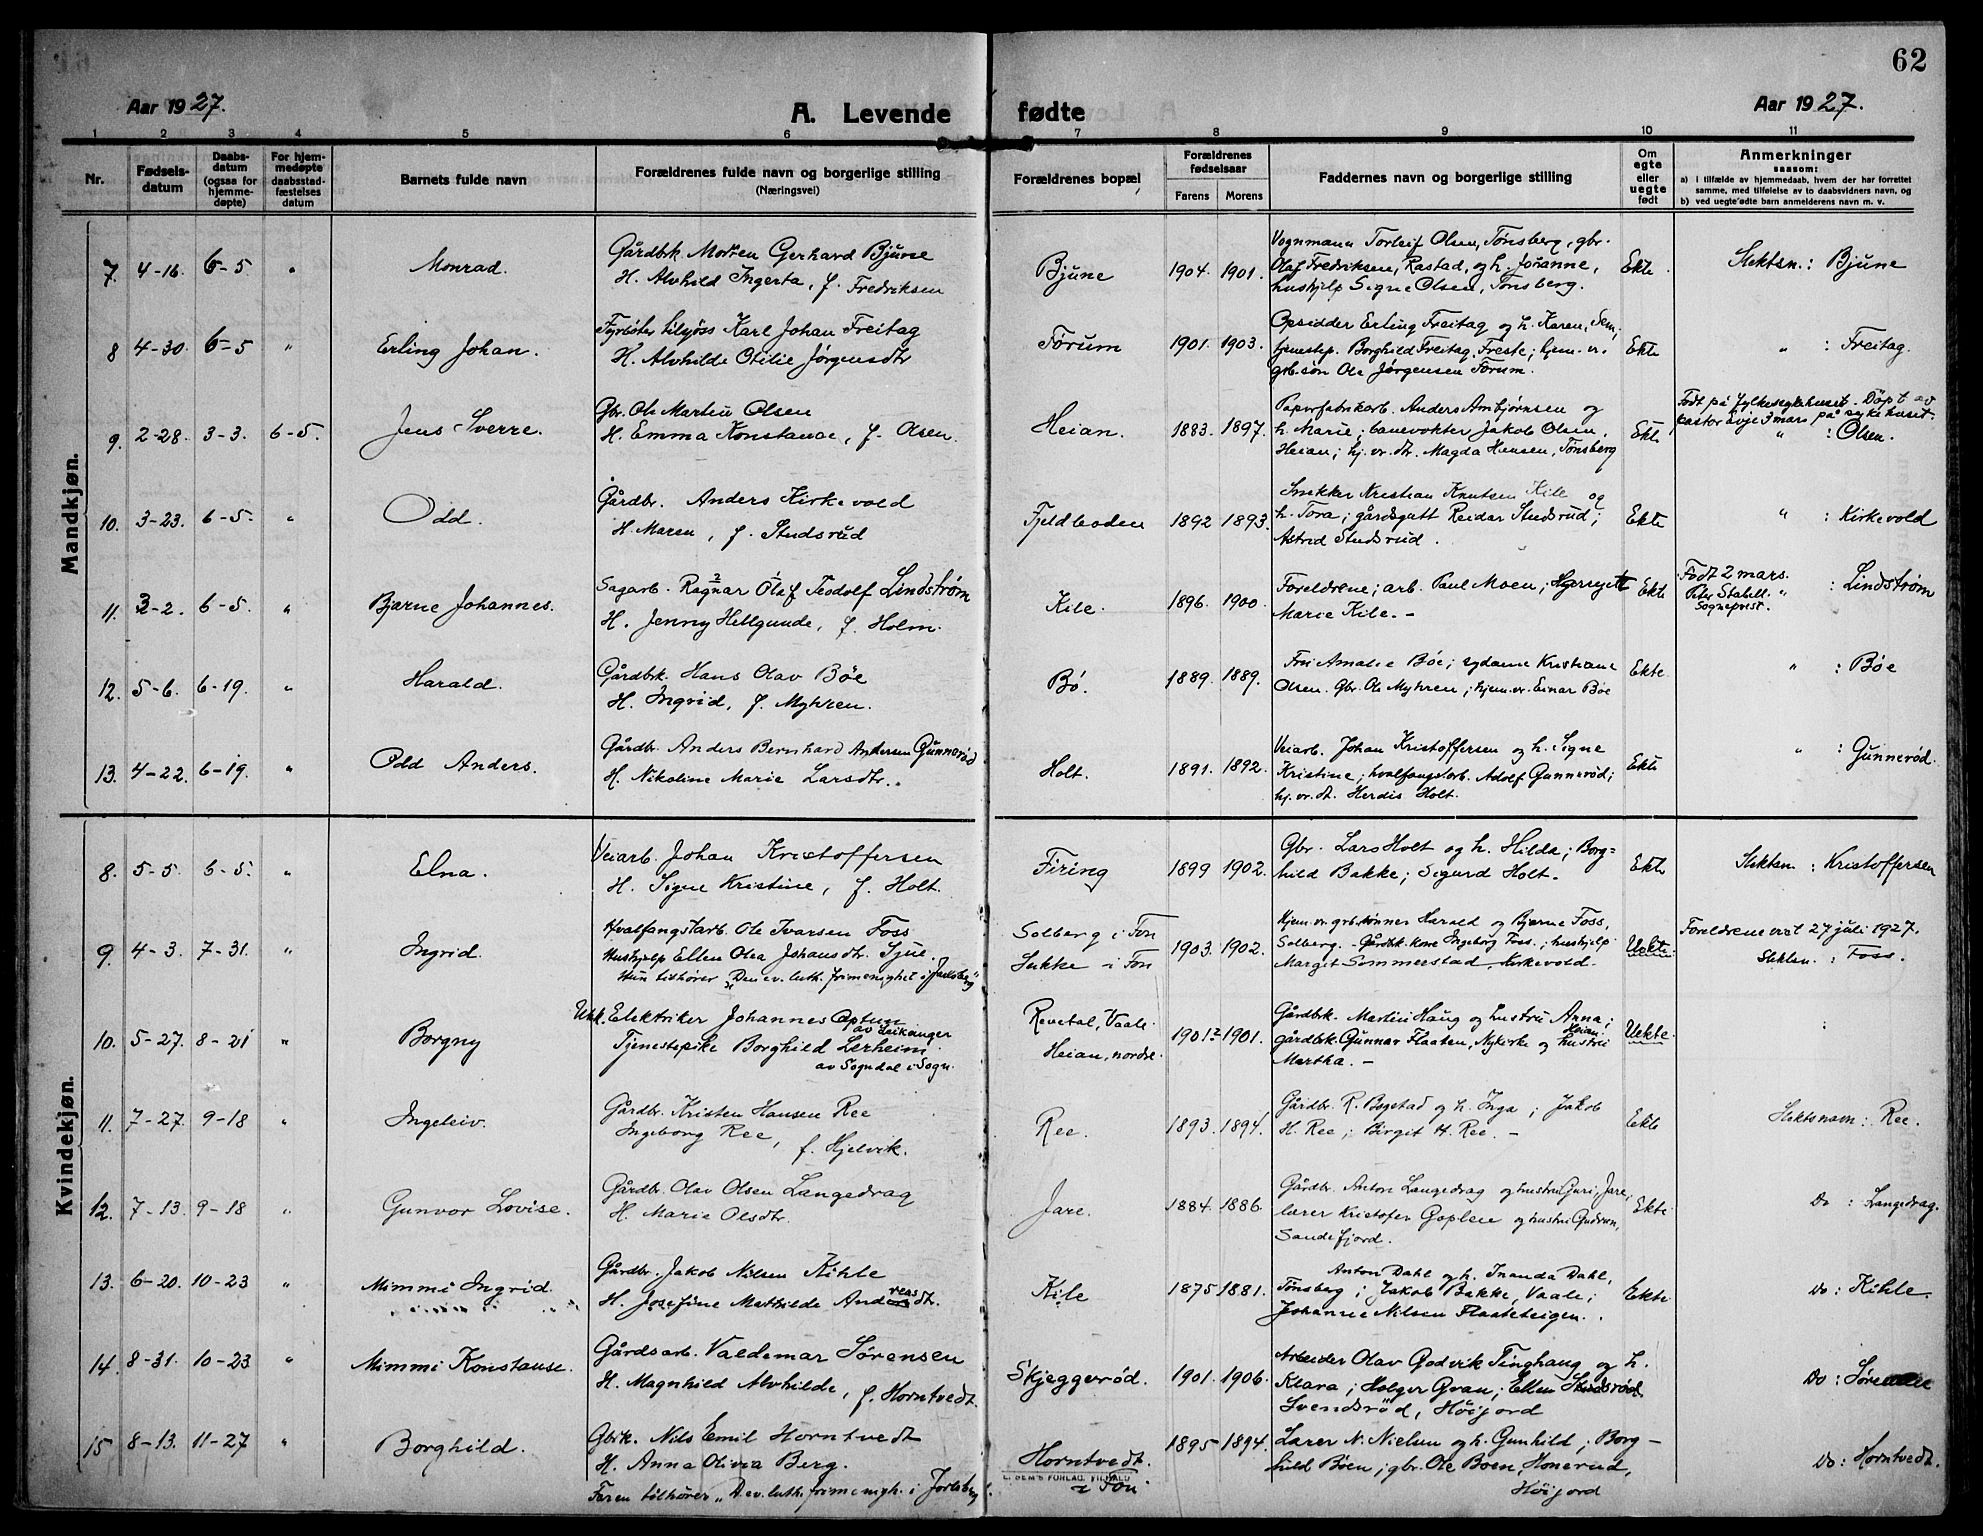 62
Aar 1927.
A. Levende fødte
Aar 1927.
1 2 3 4 5 6 7 8 9 10 11
Nr.
Fødsels-
datum
Daabs-
datum
(ogsaa for
hjemme-
døpte)
For hjem-
medøpte
daabsstad-
fæstelses
datum
Barnets fulde navn
Forældrenes fulde navn og borgerlige stilling
(Næringsvei)
Forældrenes bopæl
Forældrenes
fødselsaar
Farens Morens
Faddernes navn og borgerlige stilling
Om
egte
eller
uegte
født
Anmerkninger
saasom:
a) i tilfælde av hjemmedaab, hvem der har forrettet
samme, med tilføielse av to daabsvidners navn, og
b) ved uegte fødte barn anmelderens navn m. v.
Mandkjøn.
7. 4-16. 6-5 " Monrad.
Gårdbk. Morten Gerhard Bjune
H. Alvhild Ingerta, f. Fredriksen
Bjune 1904. 1901.
Vognmann Torleif Olsen, Tønsberg, gbr.
Olaf Fredriksen, Rastad, og h. Johanne,
hushjelp Signe Olsen, Tønsberg.
Ekte Slektsn.: Bjune
8 4-30. 6-5 " Erling Johan.
Fyrbøter tilsjøss Karl Johan Freitag
H. Alvhilde Otilie Jørgensdtr
Førum 1901. 1903.
Opsidder Erling Freitag og h. Karen, Sem;
tjenestep. Borghild Freitag, Freste; hjem. vr.
grb.søn Ole Jørgensen Førum.
Ekte " : Freitag.
9. 2-28. 3-3. 6-5. Jens Sverre.
Gbr. Ole Martin Olsen
H. Emma Konstanse, f. Olsen.
Heian. 1883. 1897.
Papirfabrikarb. Anders Ambjørnsen og
h. Marie; banevokter Jakob Olsen,
Heian; hj. vr. dt. Magda Hansen, Tønsberg
Ekte
Født på Fylkessykehuset. Døpt av
pastor Evje 3 mars på sykehuset.
" : Olsen.
10. 3-23. 6-5. " Odd.
Gårdbr. Anders Kirkevold
H. Maren, f. Studsrud
Fjeldboden 1892 1893.
Snekker Kristian Knutsen Kile og
h. Tora; gårdsgutt Reidar Studsrud;
Astrid Studsrud.
Ekte " : Kirkevold
11. 3-2. 6-5. " Bjarne Johannes.
Sagarb. Ragnar Olaf Teodolf Lindstrøm
H. Jenny Hellgunde, f. Holm.
Kile. 1896. 1900.
Foreldrene; arb. Paul Moen,
Marie Kile. -
Ekte
Født 2 mars.
Peter Stabell.
Sogneprest.
" : Lindstrøm
12. 5-6. 6-19. " Harald.
Gårdbk. Hans Olav Bøe
H. Ingrid, f. Myhren.
Bø. 1889. 1889.
Fru Amalie Bøe; sydame Kristiane
Olsen. Gbr. Ole Myhren; hjem. vr. Einar Bøe
Ekte " : Bøe
13. 4-22. 6-19. " Odd Anders.
Gårdbr. Anders Bernhard Andersen Gunnerød
H. Nikoline Marie Larsdtr.
Holt. 1891. 1892.
Veiarb. Johan Kristoffersen og h. Signe
Kristine; hvalfangstarb. Adolf Gunnerød;
hj. vr. dt. Herdis Holt.
Ekte " : Gunnerød.
Kvindekjøn.
8. 5-5. 6-5. " Elna.
Veiarb. Johan Kristoffersen
H. Signe Kristine, f. Holt.
Firing 1899 1902.
Gbr. Lars Holt og h. Hilda; Borg=
hild Bakke; Sigurd Holt.
Ekte Slektsn: Kristoffersen
9. 4-3. 7-31. " Ingrid.
Hvalfangstarb. Ole Ivarsen Foss
Hushjelp Ellen Olea Johansdtr. Syue.
Hun tilhører „Den ev. luth. frimenighet i Jarlsberg"
Solberg i Fon
Sukke - i Fon
1903. 1902.
Hjem. vr. grb.sønner Harald og Bjarne Foss,
Solberg. - Gårdbk. kone Ingeborg Foss; hushjelp
Margit Sommerstad, Kirkevold.
Uekte.
Foreldrene viet 27 juli 1927.
Slektsn. : Foss.
10. 5-27. 8-21 " Borgny
Ubk. Elektriker Johannes Optun
av Leikanger
Tjenestepike Borghild Lerheim
av Sogndal i Sogn.
Revetal, Vaale.
Heian, nordre.
1901? 1901.
Gårdbk. Martin Haug og hustru Anna;
Heian.
gårdbk. Gunnar Flaaten, Nykirke og hustru
Martha. -
Uekte. :
11. 7-27. 9-18 " Ingeleiv.
Gårdbr. Kristen Hansen Ree
Ingeborg Ree, f. Hjelvik.
Ree. 1893. 1894.
Gårdbr. R. Bogstad og h. Inga; Jakob
H. Ree; Birgit H. Ree. -
Ekte Slektsnavn: Ree.
12. 7-13. 9-18 " Gunvor Lovise.
Gårdbr. Olav Olsen Langedrag
H. Marie Olsdtr.
Jare. 1884. 1886.
Gårdbr. Anton Langedrag og hustru Guri, Jare;
lærer Kristofer Goplen og hustru Gudrun,
Sandefjord.
Ekte Do : Langedrag.
13. 6-20. 10-23 " Mimmi Ingrid
Gårdbr. Jakob Nilsen Kihle
H. Josefine Mathilde Andreasdt.
Kile 1875 1881.
Anton Dahl og h. Inanda Dahl,
Tønsberg; Jakob Bakke, Vaale;
Johanne Nilsen Flaateteigen.
Ekte Do: Kihle.
14 8-31. 10-23 " Mimmi Konstanse.
Gårdsarb. Valdemar Sørensen
H. Magnhild Alvhilde, f. Horntvedt.
Skjeggerød. 1901. 1906.
Arbeider Olav Godvik Tinghaug og h.
Klara; Holger Gran; Ellen Studsrød
Svendsrød, Høijord
Do: Sørensen
15 8-13. 11-27 " Borghild.
Gbrk. Nils Emil Horntvedt
H. Anna Olivia Berg.
Faren tilhører „D. ev. luth. frimenigh. i Jarlsberg".
Horntvedt.
i Fon
1895- 1894.
Lærer N. Nielsen og h. Gunhild; Borg-
hild Bøen; gbr. Ole Boen, Honerud,
Høijord
Do: Horntvedt.